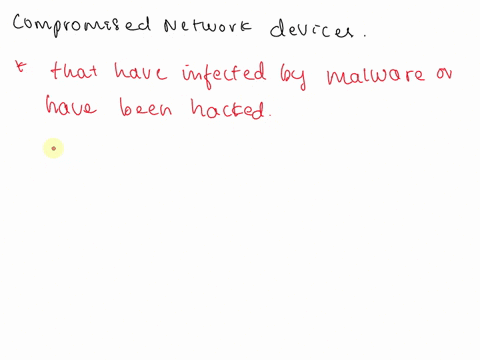 Compromised Network devices.
* that have infected by malware or
have been hacked.